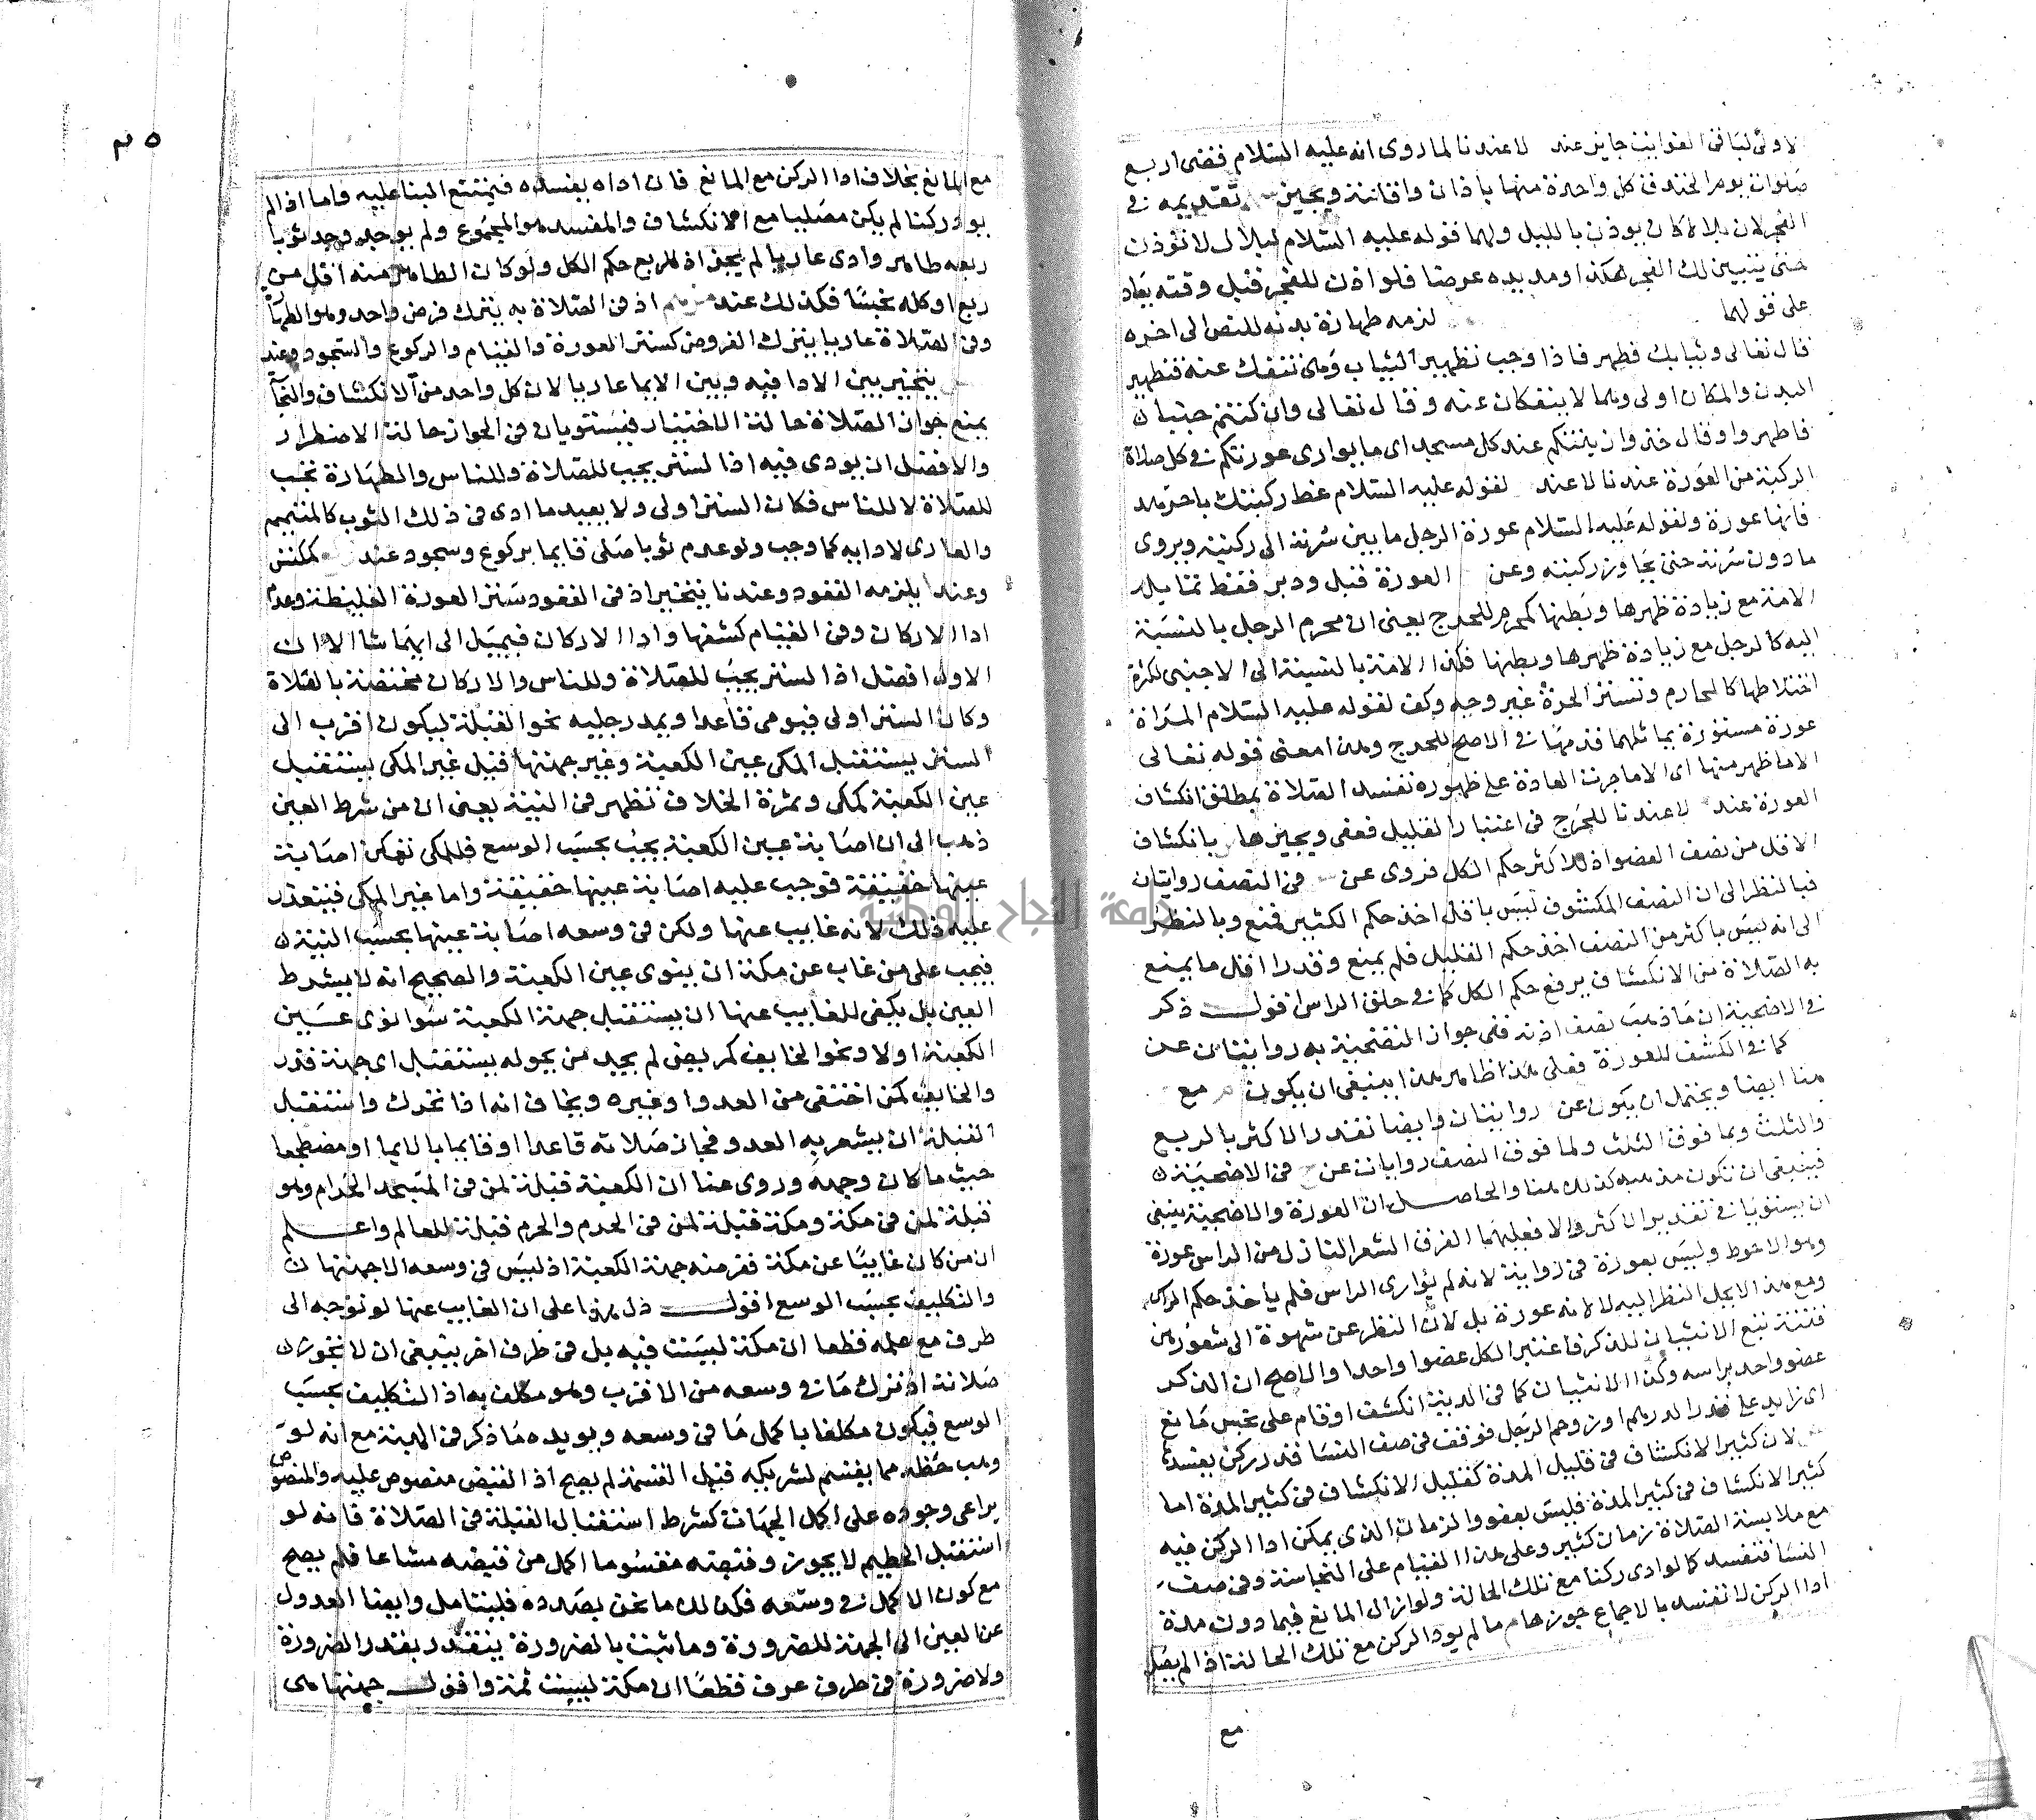 الاولى لباقى الفوايت جايز عند لا عندنا لما روى انه عليه السلام قضى اربع
صلوات يوم الخندق كل واحدة منها باذان واقامة ويجيز تقديمه فى
الفجر لان بلالا كان يوذن بالليل ولهما قوله عليه السلام لبلال لا توذن
حتى يتبين لك الفجر هكذا ومد يده عرضا فلو اذن للفجر قبل وقته يعاد
على قولهما لزمه طهارة بدنه للنص الى اخره
قال تعالى وثيابك فطهر فاذا وجب تطهير الثياب وهى تنفك عنه فتطهير
البدن والمكان اولى وهما لا ينفكان عنه وقال تعالى وان كنتم جنبا
فاطهروا وقال خذوا زينتكم عند كل مسجد اى ما يوارى عورتكم فى كل صلاة
الركبة من العورة عندنا لا عند لقوله عليه السلام غط ركبتك يا جرهد
فانها عورة ولقوله عليه السلام عورة الرجل ما بين سرته الى ركبتيه ويروى
ما دون سرته حتى يجاوز ركبته وعن العورة قبل ودبر فقط
الامة مع زيادة ظهرها وبطنها كمحرم للحرج يعنى ان محرم الرجل بالنسبة
اليه كالرجل مع زيادة ظهرها وبطنها فكذا الامة بالنسبة الى الاجنبى لكثرة
اختلاطها كالمحارم وتستر الحرة غير وجه وكف لقوله عليه السلام المراة
عورة مستورة فى الاصح للحرج وهذا معنى قوله تعالى
الا ما ظهر منها اى الا ما جرت العادة على ظهوره تفسد الصلاة بمطلق انكشاف
العورة عند لا عندنا للحرج فى اعتبار القليل فعفى ويجيزها بانكشاف
الاقل من نصف العضو اذ للاكثر حكم الكل فروى عن فى النصف روايتان
فبالنظر الى ان النصف المكشوف ليس باقل اخذ حكم الكثير فمنع وبالنظر
الى انه ليس باكثر من النصف اخذ حكم القليل فلم يمنع وقدرا اقل ما يمنع
به الصلاة من الانكشاف بربع حكم الكل كما فى حلق الراس اقول ذكر
فى الاضحية ان ما ذهب نصف اذنه ففى جواز التضحية به روايتان عن
كما فى الكشف للعورة فعلى هذا ينبغى ان يكون مع
هنا ايضا ويحتمل ان يكون عن روايتان وايضا تقدر الاكثر بالربع
والثلث وبما فوق الثلث ولما فوق النصف روايات عن فى الاضحية
فينبغى ان تكون مذهبه كذلك هنا والحاصل ان العورة والاضحية ينبغى
ان يستويا فى تقدير الاكثر والا فعليهما الفرق الشعر النازل من الراس عورة
وهو الاحوط وليس بعورة فى رواية لانه لم يوارى الراس فلم ياخذ حكم الراس
ومع هذا لا يحل النظر اليه لا لانه عورة بل لان النظر عن شهوة الى شعورهن
فتنة تبع الانثيان للذكر فاعتبر الكل عضوا واحدا والاصح ان الذكر
عضو واحد براسه وكذا الانثيان كما فى الدية انكشف او قام على نجس مانع
اى زايد على قدر الدرهم او زوحم الرجل فوقف فى صف النسا قدر ركن يفسد
لان كثير الانكشاف فى قليل المدة كقليل الانكشاف فى كثير المدة اما
كثير الانكشاف فى كثير المدة فليس بعفو والزمان الذى يمكن ادا الركن فيه
مع ملابسة الصلاة زمان كثير وعلى هذا القيام على النجاسة وفى صف
النسا فتفسد كما لو ادى ركنا مع تلك الحالة ولو ازال المانع فيما دون مدة
ادا الركن لا تفسد بالاجماع جوزها ما لم يود الركن مع تلك الحالة اذ المفسد
مع
٣٥
مع المانع بخلاف ادا الركن مع المانع فان اداه يفسده فيمتنع البنا عليه فاما اذا لم
يود ركنا لم يكن مصليا مع الانكشاف والمفسد هو المجموع ولم يوجد وجد ثوبا
ربعه طاهر وادى عاريا لم يجز اذ للربع حكم الكل ولو كان الطاهر منه اقل من
ربع او كله نجسا فكذلك عند اذ فى الصلاة به يترك فرض واحد وهو الطهارة
وفى الصلاة عاريا يترك الفروض كستر العورة والقيام والركوع والسجود وعند
يتخير بين الادا فيه وبين الايما عاريا لان كل واحد من الانكشاف والنجا
يمنع جواز الصلاة حالة الاختيار فيستويان فى الجواز حالة الاضطرار
والافضل ان يودى فيه اذ الستر يجب للصلاة وللناس والطهارة تجب
للصلاة لا للناس فكان الستر اولى ولا يعيد ما ادى فى ذلك الثوب كالمتيمم
والعارى لادايه كما وجب ولو عدم ثوبا صلى قايما بركوع وسجود عند كمكتس
وعند يلزمه القعود وعندنا يتخير اذ فى القعود ستر العورة الغليظة وعدم
ادا الاركان وفى القيام كشفها وادا الاركان فيميل الى ايهما شا الا ان
الاول افضل اذ الستر يجب للصلاة وللناس والاركان مختصة بالصلاة
وكان الستر اولى فيومى قاعدا ويمد رجليه نحو القبلة ليكون اقرب الى
الستر يستقبل المكى عين الكعبة وغير جهتها قيل غير المكى يستقبل
عين الكعبة كمكى وثمرة الخلاف تظهر فى النية يعنى ان من شرط العين
ذهب الى ان اصابة عين الكعبة يجب بحسب الوسع فللمكى تمكن اصابة
عينها حقيقة فوجب عليه اصابة عينها حقيقة واما غير المكى فيتعذر
عليه ذلك لانه غايب عنها ولكن فى وسعه اصابة عينها بحسب النية
فيجب على من غاب عن مكة ان ينوى عين الكعبة والصحيح انه لا يشرط
العين بل يكفى للغايب عنها ان يستقبل جهة الكعبة سوا نوى عين
الكعبة او لا ونحو الخايف كمريض لم يجد من يحوله يستقبل اى جهة قدر
والخايف كمن اختفى من العدو او غيره ويخاف انه اذا تحرك واستقبل
القبلة ان يشعر به العدو فجاز صلاته قاعدا او قايما بالايما او مضطجعا
حيث ما كان وجهه وروى عنا ان الكعبة قبلة لمن فى المسجد الحرام وهو
قبلة لمن فى مكة ومكة قبلة لمن فى الحرم والحرم قبلة للعالم واعلم
ان من كان غايبا عن مكة ففرضه جهة الكعبة اذ ليس فى وسعه الا جهتها
والتكليف بحسب الوسع اقول دل هذا على ان الغايب عنها لو توجه الى
طرف مع علمه قطعا ان مكة ليست فيه بل فى طرف اخر ينبغى ان لا تجوز
صلاته اذ ترك ما فى وسعه من الاقرب وهو مكلف به اذ التكليف بحسب
الوسع فيكون مكلفا باكمل ما فى وسعه ويويده ما ذكر فى الهبة مع انه لو
وهب حظه مما يقسم لشريكه قبل القسمة لم يصح اذ القبض منصوص عليه والمنصوص
يراعى وجوده على اكمل الجهات كشرط استقبال القبلة فى الصلاة فانه لو
استقبل الحطيم لا يجوز وقبضه مقسوما اكمل من قبضه مشاعا فلم يصح
مع كون الاكمل فى وسعه فكذلك ما نحن بصدده فليتامل وايضا العدول
عن العين الى الجهة للضرورة وما ثبت بالضرورة يتقدر بقدر الضرورة
ولا ضرورة فى طرف عرف قطعا ان مكة ليست ثمة واقول جهتها هى
جامعة النجاح الوطنية